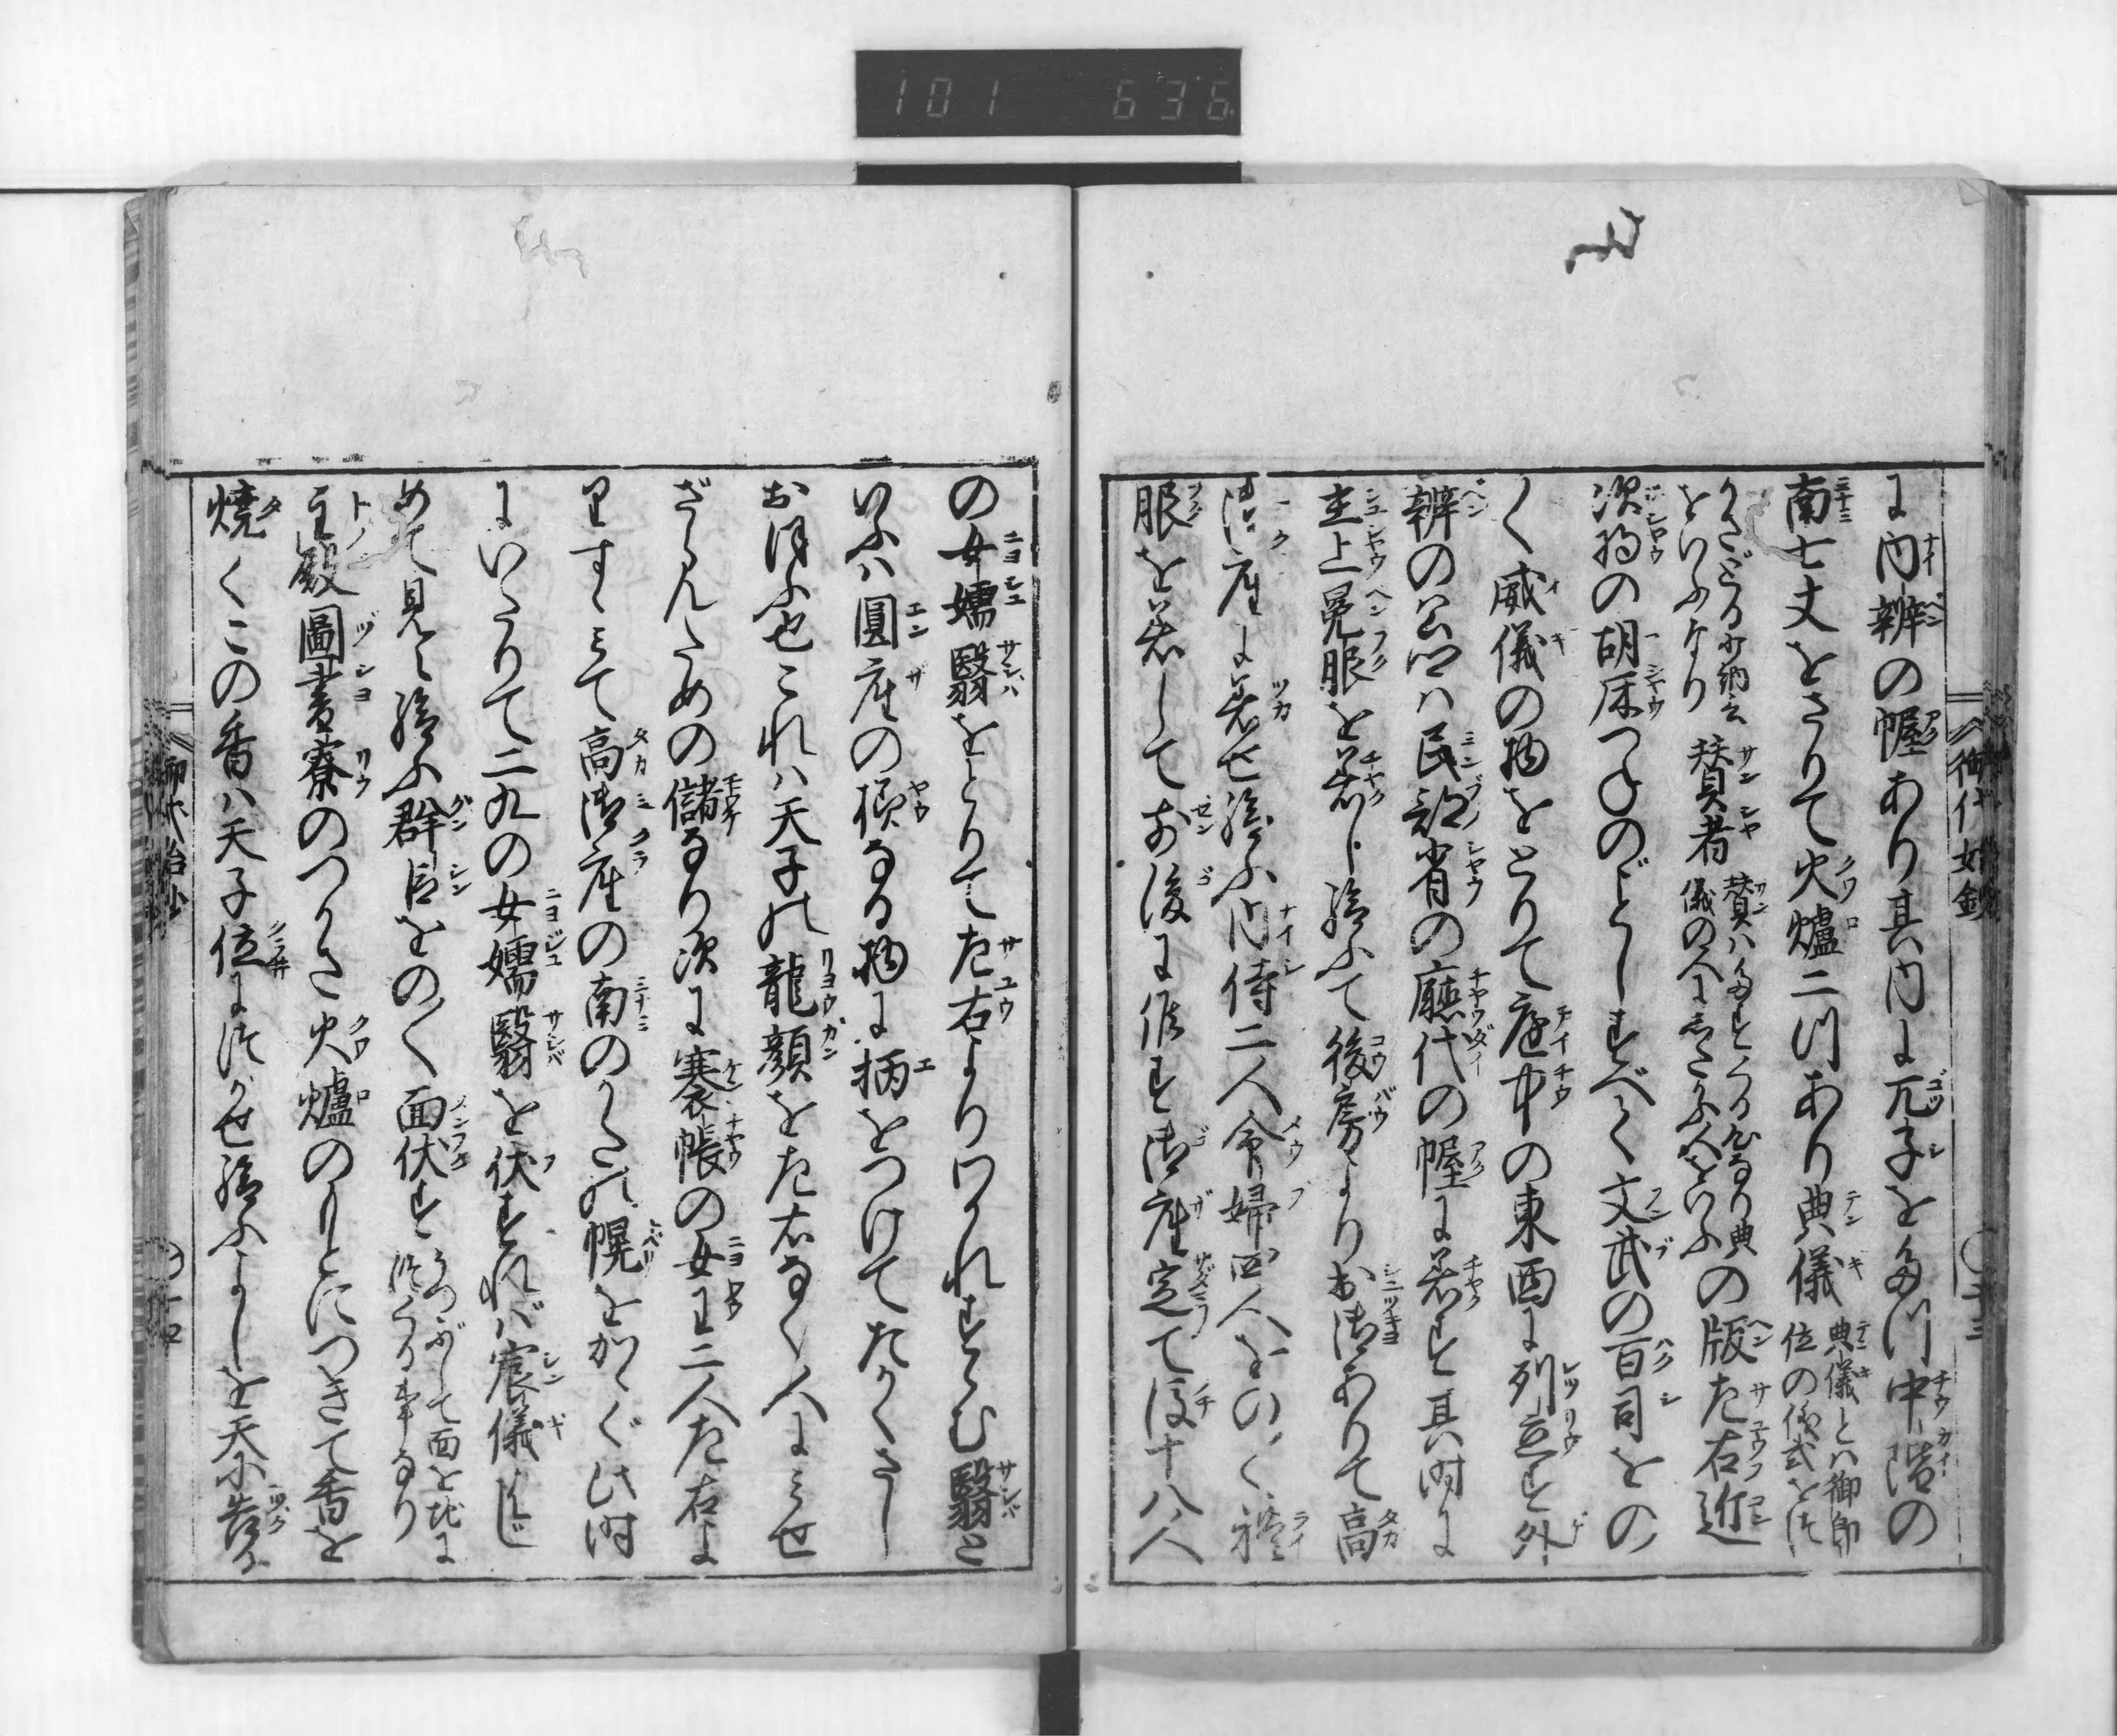 101 636
に内辨の幄あり其内に兀子をたつ中階の
南七丈をさりて火爐二つあり典儀 典儀とは御即位の儀式をつ
かさどる少納言をいふなり 賛者 賛はたすくる心なり典儀の人にしたがふ人をいふ の版左右近
次将の胡床つねのごとしすべて文武の百司をの
く威儀の物をとりて庭中の東西に列立す外
辨の公卿は民部省の廳代の幄に着す其時に
主上冕服を着し給ふて後房より出御ありて高
御座に着せ給ふ内侍二人命婦四人をのく禮
服を着して前後に候す御座定て後十八人
の女嬬翳をとりて左右よりわかれすゝむ翳と
いふハ圓座の様なる物に柄をつけてたかくさし
おほふ也これハ天子の龍顔を左右なく人にみせ
ざらんための儲なり次に褰帳の女王二人左右よ
りすゝみて高御座の南のかたの幌をかゝぐ此時
にいたりて二九の女嬬翳を伏すれバ宸儀はじ
めて見え給ふ群臣をのく面伏す うつぶして面を地につくる事なり
主殿圖書寮のつかさ火爐のもとにつきて香を
焼くこの香ハ天子位につかせ給ふよしを天に告る